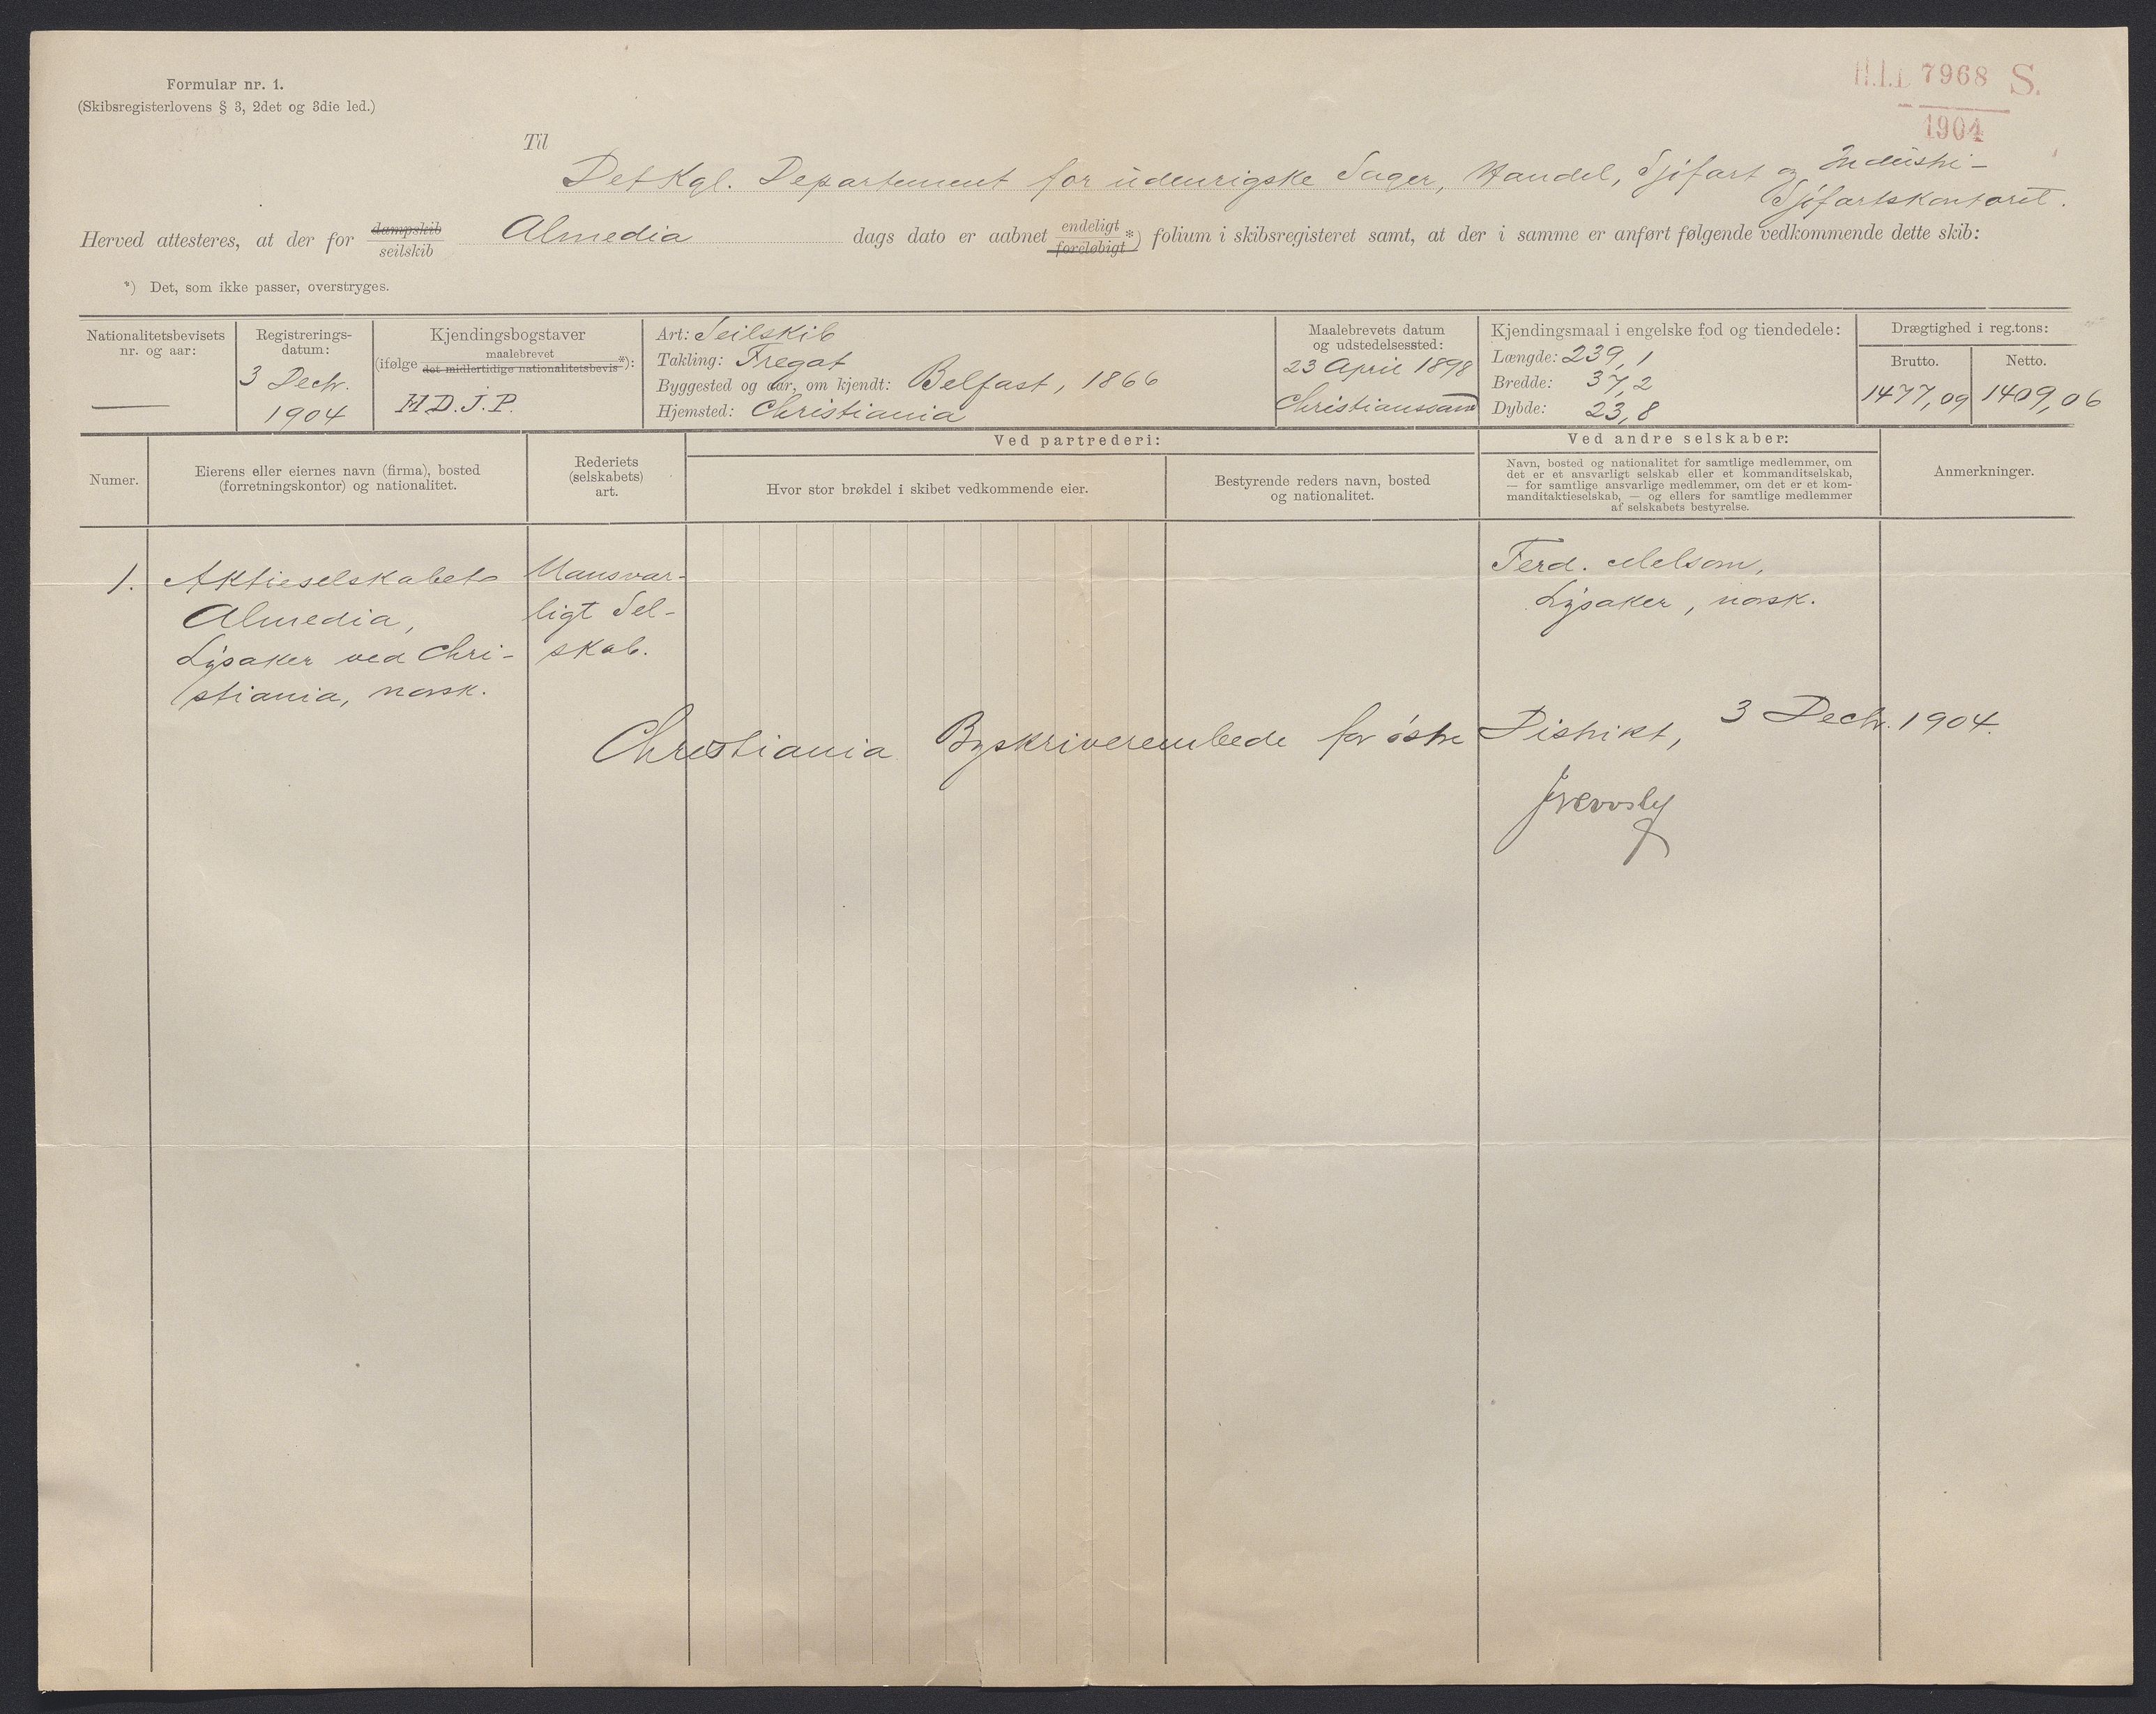 Formular nr. 1.
(Skibsregisterlovens § 3, 2det og 3die led.)
H.I.L 7968 S.
1904
Til
Det Kgl. Departement for udenrigske Sager, Handel, Sjøfart og Industri-
Sjøfartskontoret.
Herved attesteres, at der for dampskib
seilskib
Almedia
dags dato er aabnet endeligt
foreløbigt *) folium i skibsregisteret samt, at der i samme er anført følgende vedkommende dette skib:
*) Det, som ikke passer, overstryges.
Nationalitetsbevisets
nr. og aar:
—
Registrerings-
datum:
3 Decbr.
1904
Kjendingsbogstaver
(ifølge maalebrevet
det midlertidige nationalitetsbevis *):
H.D.J.P.
Art: Seilskib
Takling: Fregat
Byggested og aar, om kjendt: Belfast, 1866
Hjemsted: Christiania
Maalebrevets datum
og udstedelsessted:
23 April 1898
Christianssand
Kjendingsmaal i engelske fod og tiendedele:
Længde: 239,1
Bredde: 37,2
Dybde: 23,8
Drægtighed i reg.tons:
Brutto.
1477,09
Netto.
1409,06
Numer.
Eierens eller eiernes navn (firma), bosted
(forretningskontor) og nationalitet.
Rederiets
(selskabets)
art.
Ved partrederi:
Hvor stor brøkdel i skibet vedkommende eier.
Bestyrende reders navn, bosted
og nationalitet.
Ved andre selskaber:
Navn, bosted og nationalitet for samtlige medlemmer, om
det er et ansvarligt selskab eller et kommanditselskab,
— for samtlige ansvarlige medlemmer, om det er et kom-
manditaktieselskab, — og ellers for samtlige medlemmer
af selskabets bestyrelse.
Anmerkninger.
1.
Aktieselskabet
Almedia,
Lysaker ved Chri-
stiania, norsk.
Uansvar-
ligt Sel-
skab.
Ferd. Melsom,
Lysaker, norsk.
Christiania Byskriverembede for østre Distrikt, 3 Decbr. 1904.